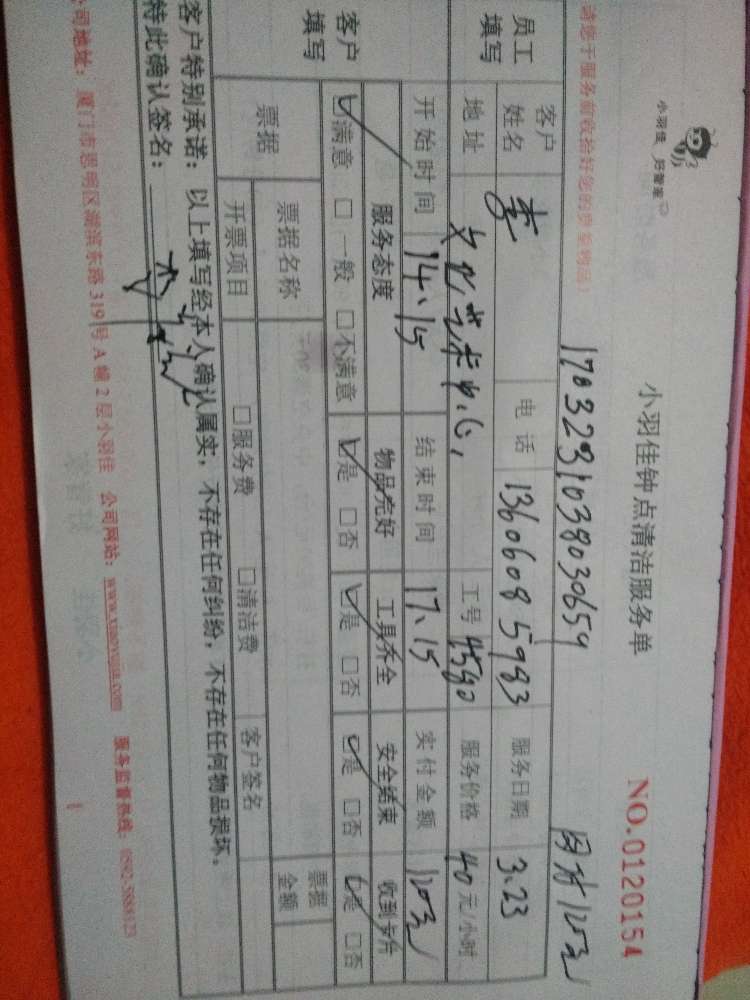 小羽佳 好管家
小羽佳钟点清洁服务单
NO.0120154
请您于服务前收拾好您的贵重物品!
1703231038030659
120元
员工填写
客户姓名 李 电话 13606085983 服务日期 3.23
地址 文化艺术中心, 工号 4580 服务价格 40元/小时
开始时间 14、15 结束时间 17、15 实付金额 120元
客户填写
服务态度 物品完好 工具齐全 安全结束 收到卡片
☑满意 □一般 □不满意 ☑是 □否 ☑是 □否 ☑是 □否 ☑是 □否
票据 票据名称 票据金额
开票项目 □服务费 □清洁费 客户签名
客户特别承诺:以上填写经本人确认属实,不存在任何纠纷,不存在任何物品损坏。
特此确认签名:
公司地址:厦门市思明区湖滨东路319号A幢2层小羽佳 公司网站:www.xiaoyujia.com 服务监督热线:0592-5888123